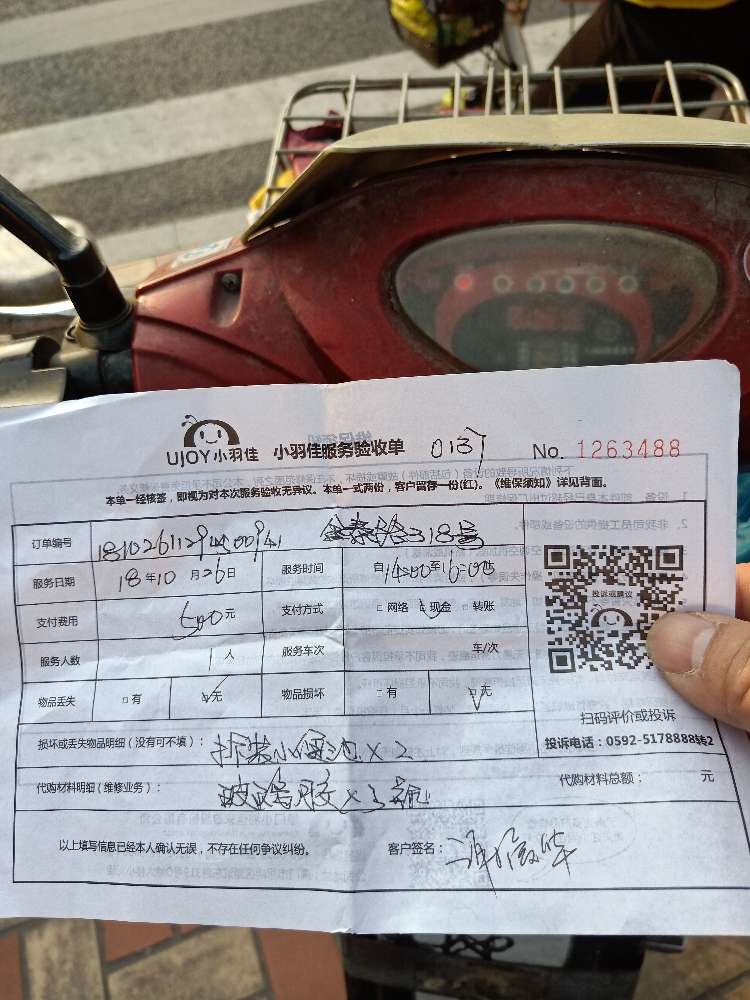 UJOY小羽佳 小羽佳服务验收单 0137 No. 1263488
本单一经核签，即视为对本次服务验收无异议。本单一式两份，客户留存一份(红)。《维保须知》详见背面。
订单编号 318号
服务日期 18年10月26日 服务时间 自14:00至16:00
支付费用 500元 支付方式 □网络 ☑现金 □转账
服务人数 1人 服务车次 车/次
物品丢失 □有 ☑无 物品损坏 □有 ☑无
投诉或建议
扫码评价或投诉
投诉电话：0592-5178888转2
损坏或丢失物品明细（没有可不填）： 拆装小便池×2
代购材料明细（维修业务）： 玻璃胶×3 代购材料总额： 元
以上填写信息已经本人确认无误，不存在任何争议纠纷。 客户签名：